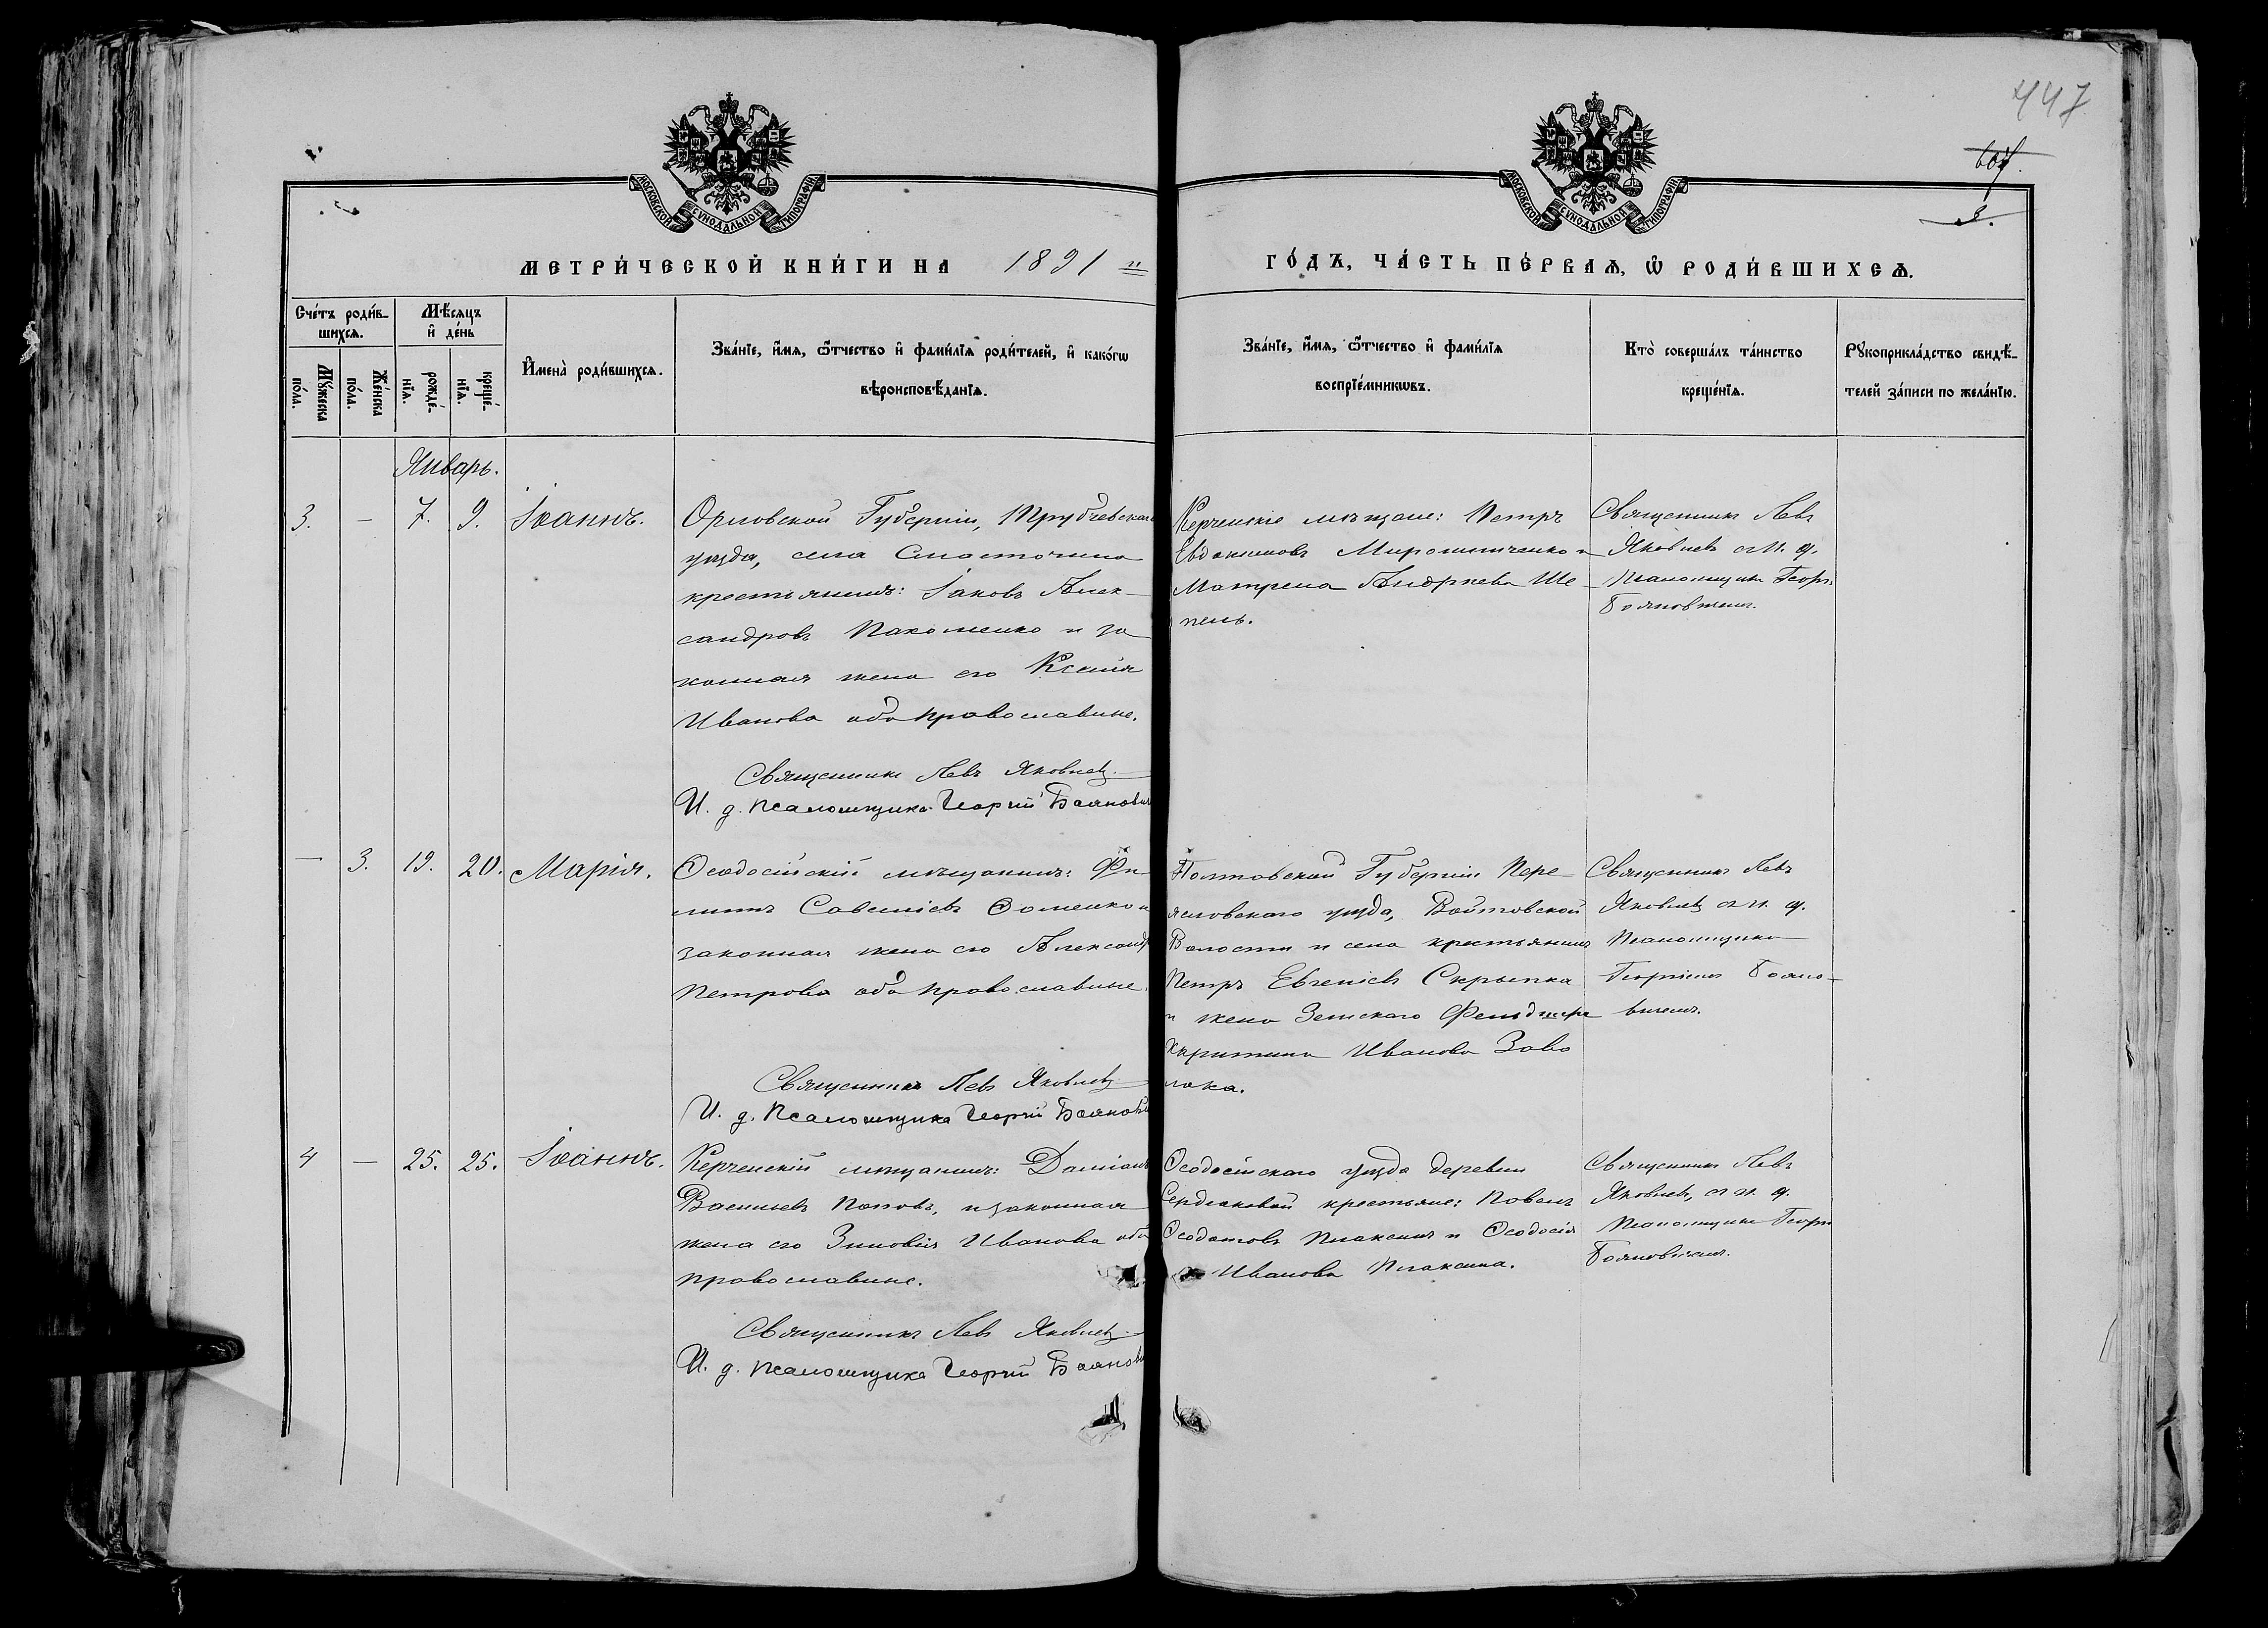 447
607.
3.
МОСКОВСКОЙ СУНОДАЛЬНОЙ ТИПОГРАФІИ
МОСКОВСКОЙ СУНОДАЛЬНОЙ ТИПОГРАФІИ
МЕТРИ́ЧЕСКОЙ КНИ́ГИ НА 1891 й
ГО́ДЪ, ЧА́СТЬ ПЕ́РВАѦ, Ѡ҆ РОДИ́ВШИХСѦ.
Сче́тъ роди́в-
шихсѧ.
Мꙋ́жеска
по́ла.
Же́нска
по́ла.
Мѣ́сѧцъ
и҆ де́нь
рожде́-
нїѧ.
креще́-
нїѧ.
И҆мена̀ роди́вшихсѧ.
Зва́нїе, и҆́мѧ, ѻ҆́тчество и҆ фами́лїѧ роди́телей, и҆ како́гѡ
вѣроисповѣ́данїѧ.
Зва́нїе, и҆́мѧ, ѻ҆́тчество и҆ фами́лїѧ
воспрїе́мникѡвъ.
Кто̀ соверша́лъ та́инство
креще́нїѧ.
Рꙋкоприкла́дство свидѣ́-
телей за́писи по жела́нїю.
Январь.
3. — 7. 9. Іоаннъ.
Орловской Губерніи, Трубчевскаго
уѣзда, села
крестьянинъ: Іаковъ Алек-
сандровъ Пахоменко и за
конная жена его Ксенія
Иванова оба православные.
Священникъ Левъ Яковлевъ
И. д. Псаломщика Георгій Бояновичъ
Керченскіе мѣщане: Петръ
Евдокимовъ Мирошниченко и
Матрена Андреева Ше
пель.
Священникъ Левъ
Яковлевъ съ и. д.
Псаломщика Георг.
Бояновичемъ.
— 3. 19. 20. Марія.
Ѳеодосійскій мѣщанинъ: Фи
липпъ Савеліевъ Ѳоменко и
законная жена его Александра
Петрова оба православные.
Священникъ Левъ Яковлевъ
И. д. Псаломщика Георгій Бояновичъ
Полтавской Губерніи Пере-
яславскаго уѣзда, Войтовской
Волости и села крестьянинъ
Петръ Евгеніевъ Скрыпка
и жена Земскаго Фельдшера
Христина Ивановна Заво
лока.
Священникъ Левъ
Яковлевъ съ и. д.
Псаломщика
Георгіемъ Бояно-
вичемъ.
4 — 25. 25. Іоаннъ.
Керченскій мѣщанинъ: Даміанъ
Васильевъ Поповъ, и законная
жена его Зиновія Иванова оба
православные.
Священникъ Левъ Яковлевъ
И. д. Псаломщика Георгій Бояновичъ
Ѳеодосійскаго уѣзда деревни
крестьяне: Павелъ
Ѳеодотовъ Плаксинъ и Ѳеодосія
Иванова Плаксина.
Священникъ Левъ
Яковлевъ, съ и. д.
Псаломщика Георг
Бояновичемъ.